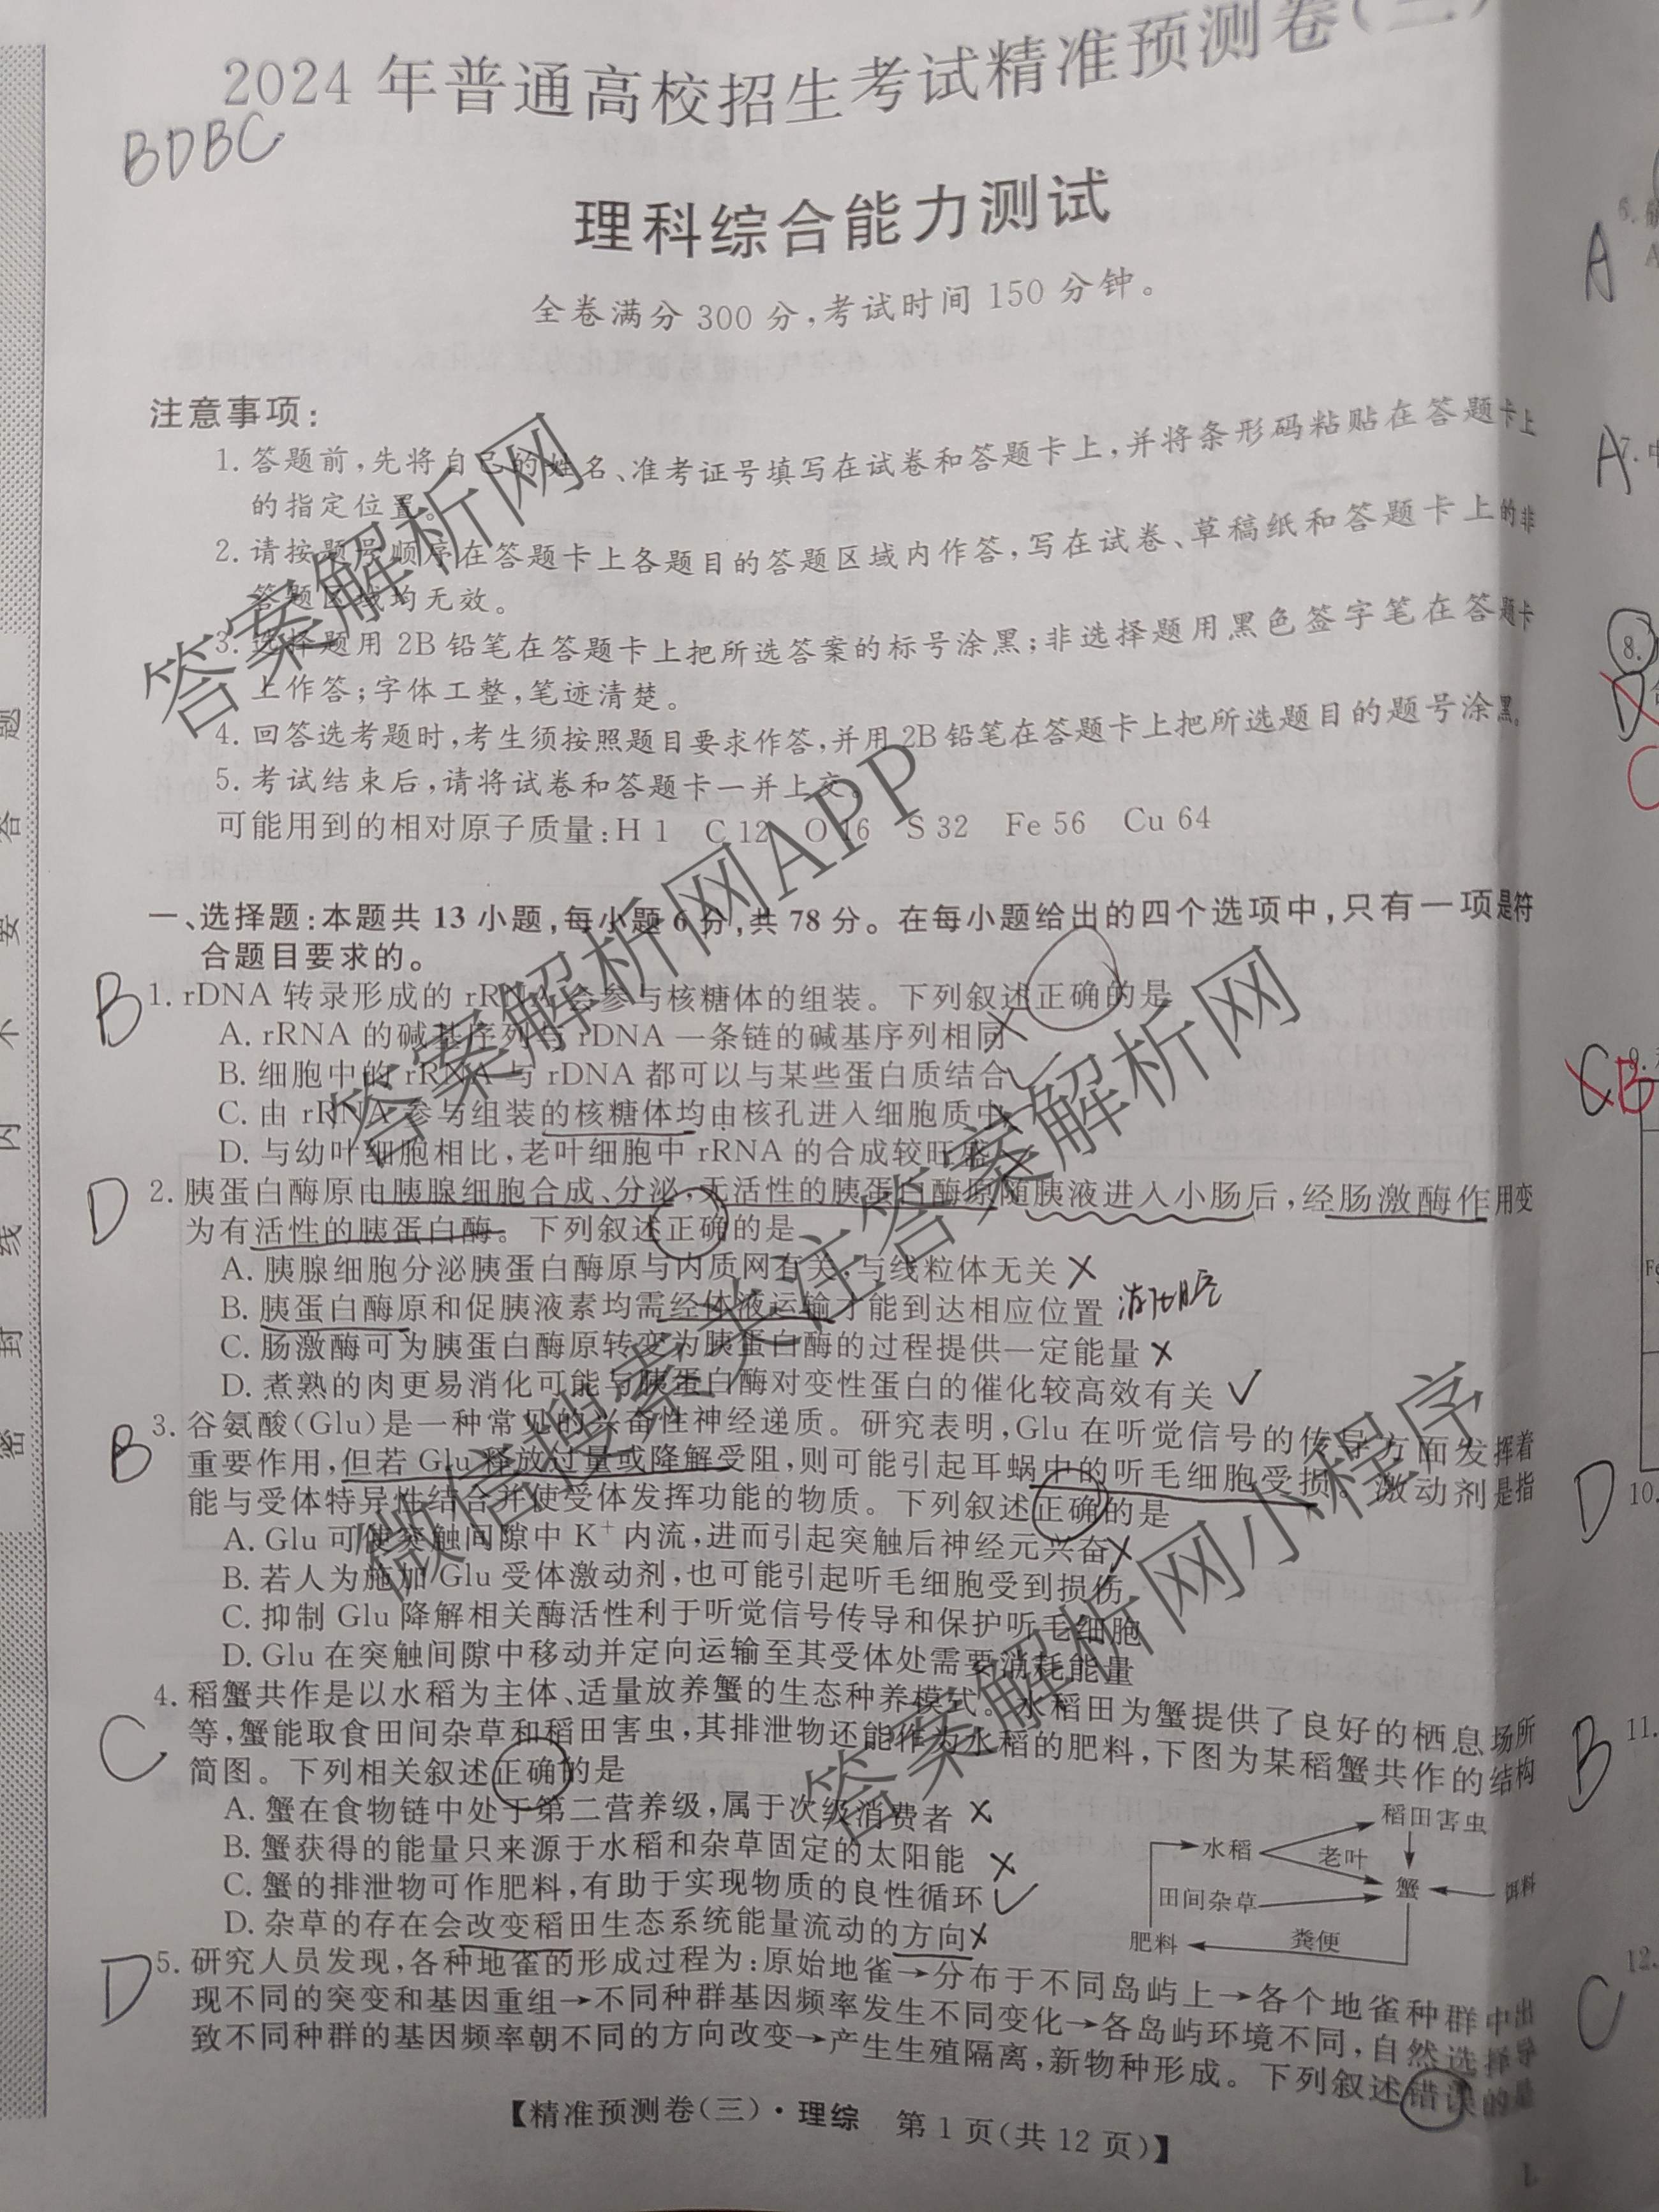 2024 年普通高校招生考试精准预测卷(三)
BDBC
理科综合能力测试
全卷满分 300 分,考试时间 150 分钟。
注意事项:
1. 答题前,先将自己的姓名、准考证号填写在试卷和答题卡上,并将条形码粘贴在答题卡上
的指定位置。
2. 请按题号顺序在答题卡上各题目的答题区域内作答,写在试卷、草稿纸和答题卡上的非
答题区域均无效。
3. 选择题用 2B 铅笔在答题卡上把所选答案的标号涂黑;非选择题用黑色签字笔在答题卡
上作答;字体工整,笔迹清楚。
4. 回答选考题时,考生须按照题目要求作答,并用 2B 铅笔在答题卡上把所选题目的题号涂黑。
5. 考试结束后,请将试卷和答题卡一并上交。
可能用到的相对原子质量:H 1 C 12 O 16 S 32 Fe 56 Cu 64
一、选择题:本题共 13 小题,每小题 6 分,共 78 分。在每小题给出的四个选项中,只有一项是符
合题目要求的。
B 1. rDNA 转录形成的 rRNA 会参与核糖体的组装。下列叙述正确的是
A. rRNA 的碱基序列与 rDNA 一条链的碱基序列相同
B. 细胞中的 rRNA 与 rDNA 都可以与某些蛋白质结合
C. 由 rRNA 参与组装的核糖体均由核孔进入细胞质中
D. 与幼叶细胞相比,老叶细胞中 rRNA 的合成较旺盛
D 2. 胰蛋白酶原由胰腺细胞合成、分泌,无活性的胰蛋白酶原随胰液进入小肠后,经肠激酶作用变
为有活性的胰蛋白酶。下列叙述正确的是
A. 胰腺细胞分泌胰蛋白酶原与内质网有关,与线粒体无关
B. 胰蛋白酶原和促胰液素均需经体液运输才能到达相应位置
C. 肠激酶可为胰蛋白酶原转变为胰蛋白酶的过程提供一定能量
D. 煮熟的肉更易消化可能与胰蛋白酶对变性蛋白的催化较高效有关
B 3. 谷氨酸(Glu)是一种常见的兴奋性神经递质。研究表明,Glu 在听觉信号的传导方面发挥着
重要作用,但若 Glu 释放过量或降解受阻,则可能引起耳蜗中的听毛细胞受损。激动剂是指
能与受体特异性结合并使受体发挥功能的物质。下列叙述正确的是
A. Glu 可使突触间隙中 K⁺ 内流,进而引起突触后神经元兴奋
B. 若人为施加 Glu 受体激动剂,也可能引起听毛细胞受到损伤
C. 抑制 Glu 降解相关酶活性利于听觉信号传导和保护听毛细胞
D. Glu 在突触间隙中移动并定向运输至其受体处需要消耗能量
C 4. 稻蟹共作是以水稻为主体、适量放养蟹的生态种养模式。水稻田为蟹提供了良好的栖息场所
等,蟹能取食田间杂草和稻田害虫,其排泄物还能作为水稻的肥料,下图为某稻蟹共作的结构
简图。下列相关叙述正确的是
A. 蟹在食物链中处于第二营养级,属于次级消费者
B. 蟹获得的能量只来源于水稻和杂草固定的太阳能
C. 蟹的排泄物可作肥料,有助于实现物质的良性循环
D. 杂草的存在会改变稻田生态系统能量流动的方向
稻田害虫
水稻
老叶
田间杂草
蟹
饵料
肥料
粪便
D 5. 研究人员发现,各种地雀的形成过程为:原始地雀→分布于不同岛屿上→各个地雀种群中出
现不同的突变和基因重组→不同种群基因频率发生不同变化→各岛屿环境不同,自然选择导
致不同种群的基因频率朝不同的方向改变→产生生殖隔离,新物种形成。下列叙述错误的是
【精准预测卷(三)·理综 第 1 页(共 12 页)】
密 封 线 内 不 要 答 题
A 6.
A
A 7.
8.
D
C
9.
C B
D 10.
B 11.
C 12.
答案解析网
答案解析网APP
微信搜索关注答案解析网
答案解析网小程序